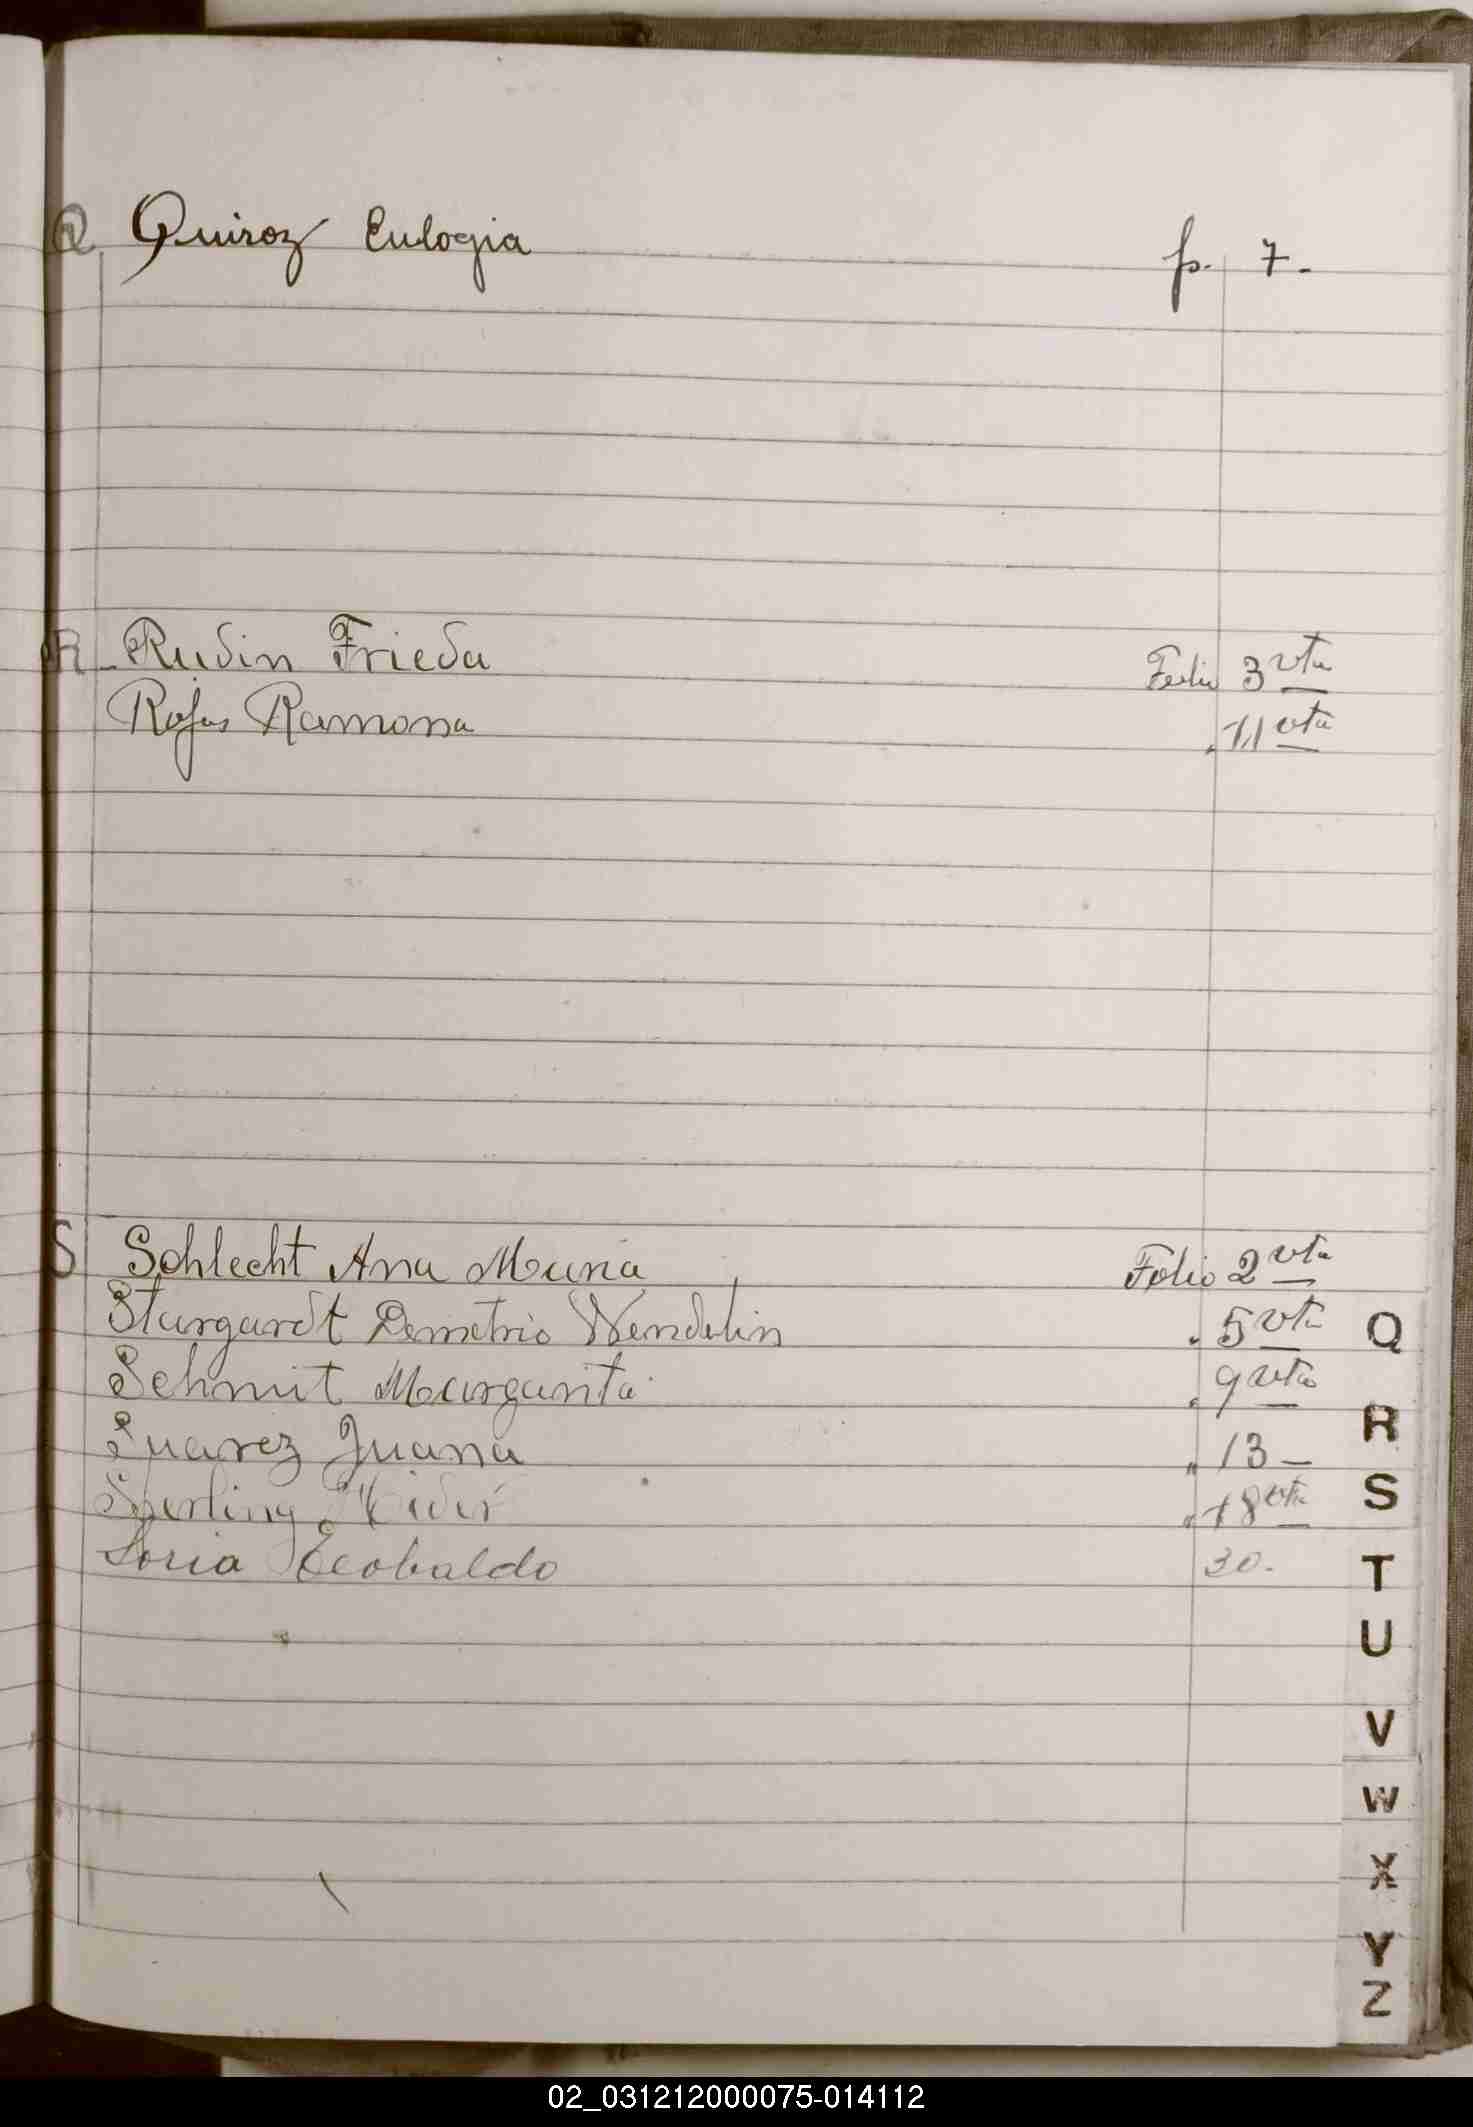 Q Quiroz Eulogia p. 7.
R Rudin Frieda Folio 3 vta
Rojas Ramona " 11 vta
S Schlecht Ana Maria Folio 2 vta
Stargardt Demetrio Wendelin " 5 vta
Schmit Margarita " 9 vta
Suarez Juana " 13
Sperling " 18 vta
Soria Teobaldo 30.
Q
R
S
T
U
V
W
X
Y
Z
02_031212000075-014112